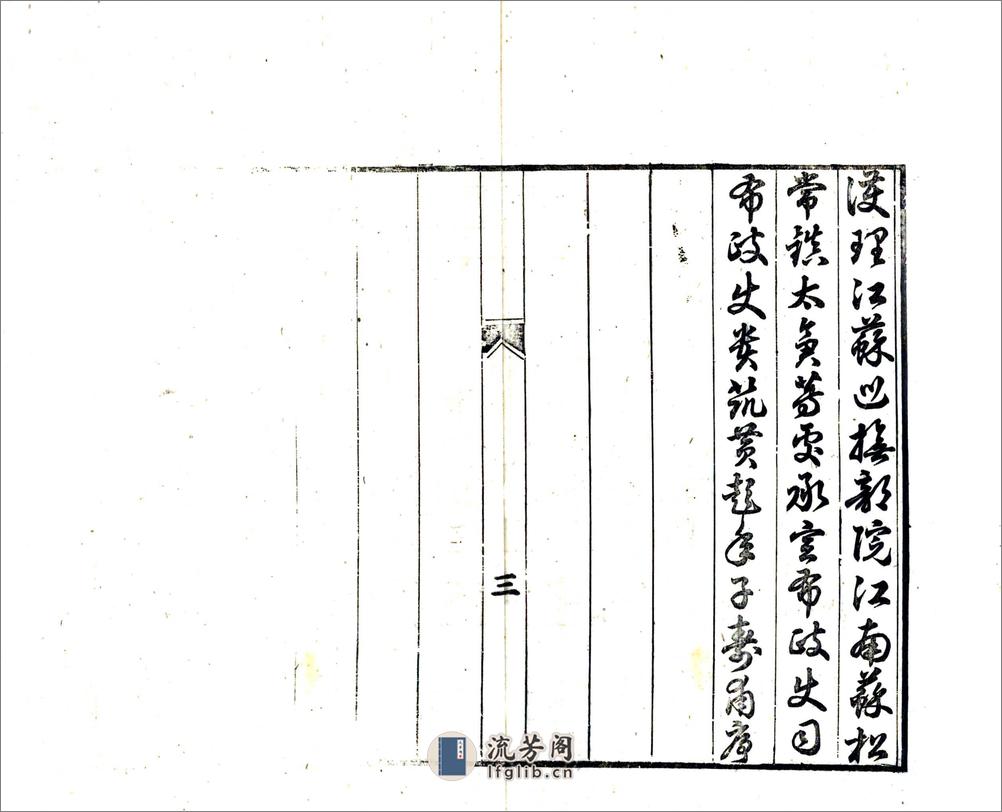 護理江蘇巡撫部院江南蘇松
常鎮太倉等處承宣布政使司
布政使貴筑黃彭年子壽甫序
三
流芳阁
lfglib.cn